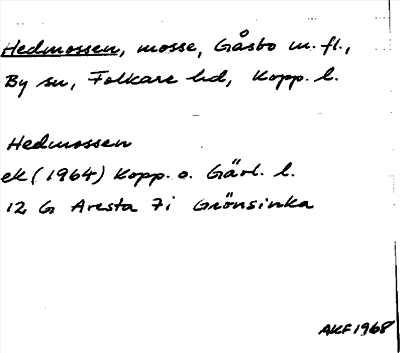 Hedmossen, mosse, Gåsbo m. fl.,
By sn, Folkare hd, Kopp. l.
Hedmossen
ek (1964) Kopp. o. Gävl. l.
12 G Avesta 7i Grönsinka
AKF 1968